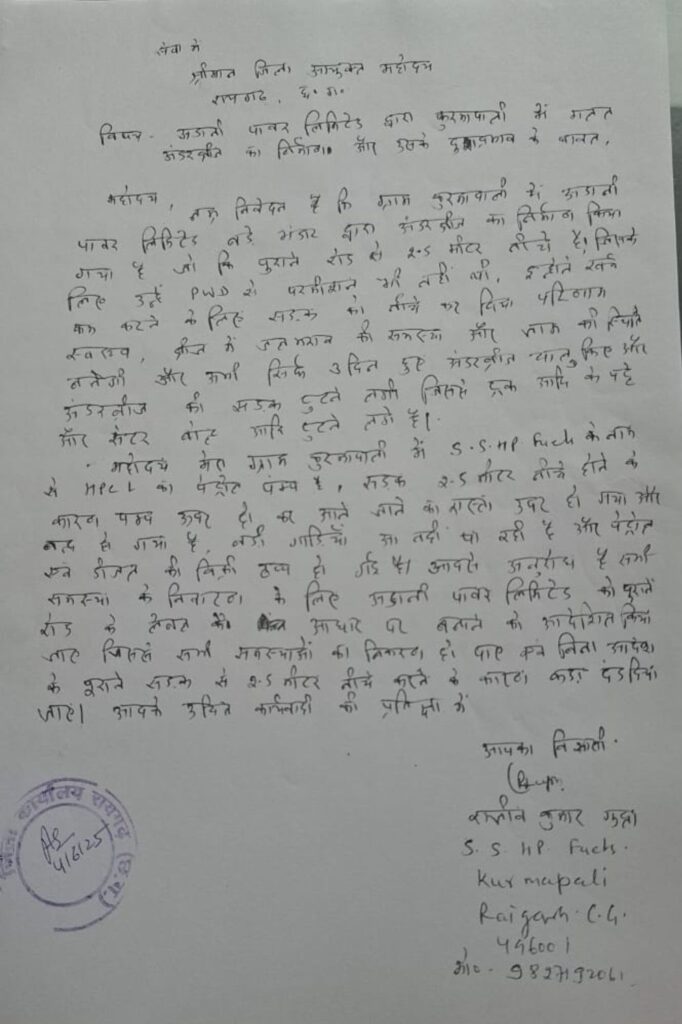 सेवा में
श्रीमान जिला आयुक्त महोदय
रायगढ़, छ.ग.
विषय- अडानी पावर लिमिटेड द्वारा कुरमापाली में गलत
अंडरब्रीज का निर्माण और उसके दुष्प्रभाव के बाबत,
महोदय,
निवेदन है कि ग्राम कुरमापाली में अडानी
पावर लिमिटेड बड़े भंडार द्वारा अंडरब्रीज का निर्माण किया
गया है जो कि पुराने रोड से 2.5 मीटर नीचे है। जिसके
लिए उन्हें PWD से परमीशन भी नहीं थी, इन्होने खर्च
कम करने के लिए सड़क को नीचे कर दिया परिणाम
स्वरूप, ब्रीज में जलभराव की समस्या और जाम की स्थिति
बनेगी और अभी सिर्फ 3 दिन हुए अंडरब्रीज चालु किए और
अंडरब्रीज की सड़क टुटने लगी जिससे ट्रक आदि के पट्टे
और सेंटर बोल्ट आदि टुटने लगे है।
महोदय मेरा ग्राम कुरमापाली में S.S. HP Fuels के नाम
से HPCL का पेट्रोल पम्प है, सड़क 2.5 मीटर नीचे होने के
कारण पम्प ऊपर हो कर आने जाने का रास्ता उपर हो गया और
बन्द हो गया है, बड़ी गाड़ियाँ आ नहीं पा रही है और पेट्रोल
एवं डीजल की बिक्री ठप्प हो गई है। आपसे अनुरोध है सभी
समस्या के निवारण के लिए अडानी पावर लिमिटेड को पुराने
रोड के लेवल के आधार पर बनाने को आदेशित किया
जाए जिससे सभी समस्याओं का निवारण हो पाए एवं बिना आदेश
के पुराने सड़क से 2.5 मीटर नीचे करने के कारण कड़ा दंड दिया
जाए। आपके उचित कार्यवाही की प्रतिक्षा में
आपका
कुमार गुप्ता
S. S HP Fuels.
Kurmapali
Raigarh C.G.
496001
मो०- 9827192061
कार्यालय रायगढ़ (छ.ग.)
4/6/25